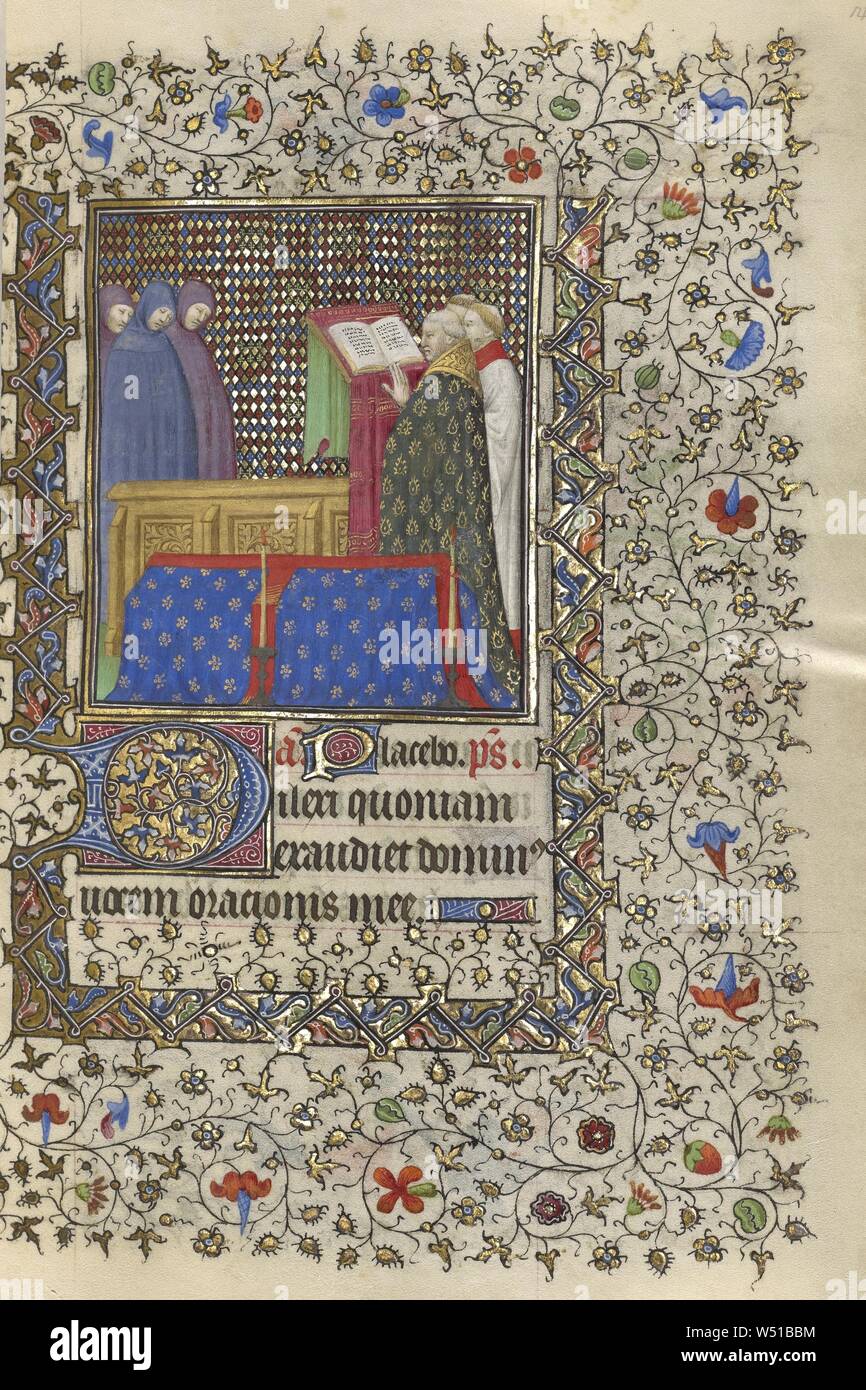 añ. Placebo. ps̄.
Dilexi quoniam
exaudiet dominꝰ
uocem oracionis mee.
alamy
Image ID: W51BBM
www.alamy.com